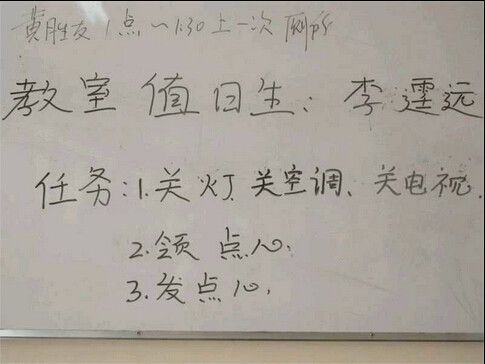 黄胜友 1点~1:30上一次厕所
教室值日生：李霆远
任务：1.关灯、关空调、关电视.
2.领点心.
3.发点心.